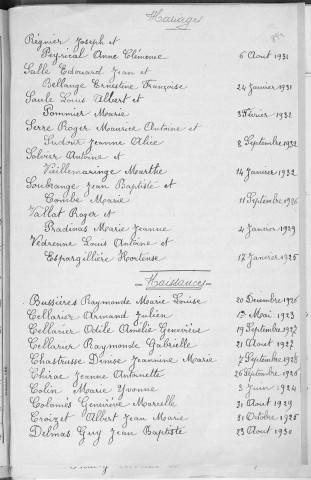 Mariages
Régnier Joseph et
Peyrical Anne Clémence 6 Aout 1931
Salle Edouard Jean et
Bellange Ernestine Françoise 24 Janvier 1931
Saule Louis Albert et
Pommier Marie 3 Février 1932
Serre Roger Maurice Antoine et
Sudour Jeanne Alice 8 Septembre 1932
Solvier Antoine et
Vieillemaringe Marthe 14 Janvier 1932
Soubrange Jean Baptiste et
Combe Marie 11 Septembre 1926
Vallat Roger et
Pradinas Marie Jeanne 4 Janvier 1929
Védrenne Louis Antoine et
Espargillière Hortense 17 Janvier 1925
Naissances
Bussières Raymonde Marie Louise 20 Décembre 1926
Cellarier Armand Julien 1er Mai 1923
Cellarier Odile Amélie Geneviève 19 Septembre 1927
Cellarier Raymonde Gabrielle 21 Aout 1927
Chastrusse Denise Jeannine Marie 7 Septembre 1928
Chirac Jeanne Antoinette 26 Septembre 1926
Colin Marie Yvonne 3 Juin 1924
Colomès Geneviève Marcelle 31 Aout 1929
Croizet Albert Jean Marie 31 Octobre 1925
Delmas Guy Jean Baptiste 23 Aout 1930